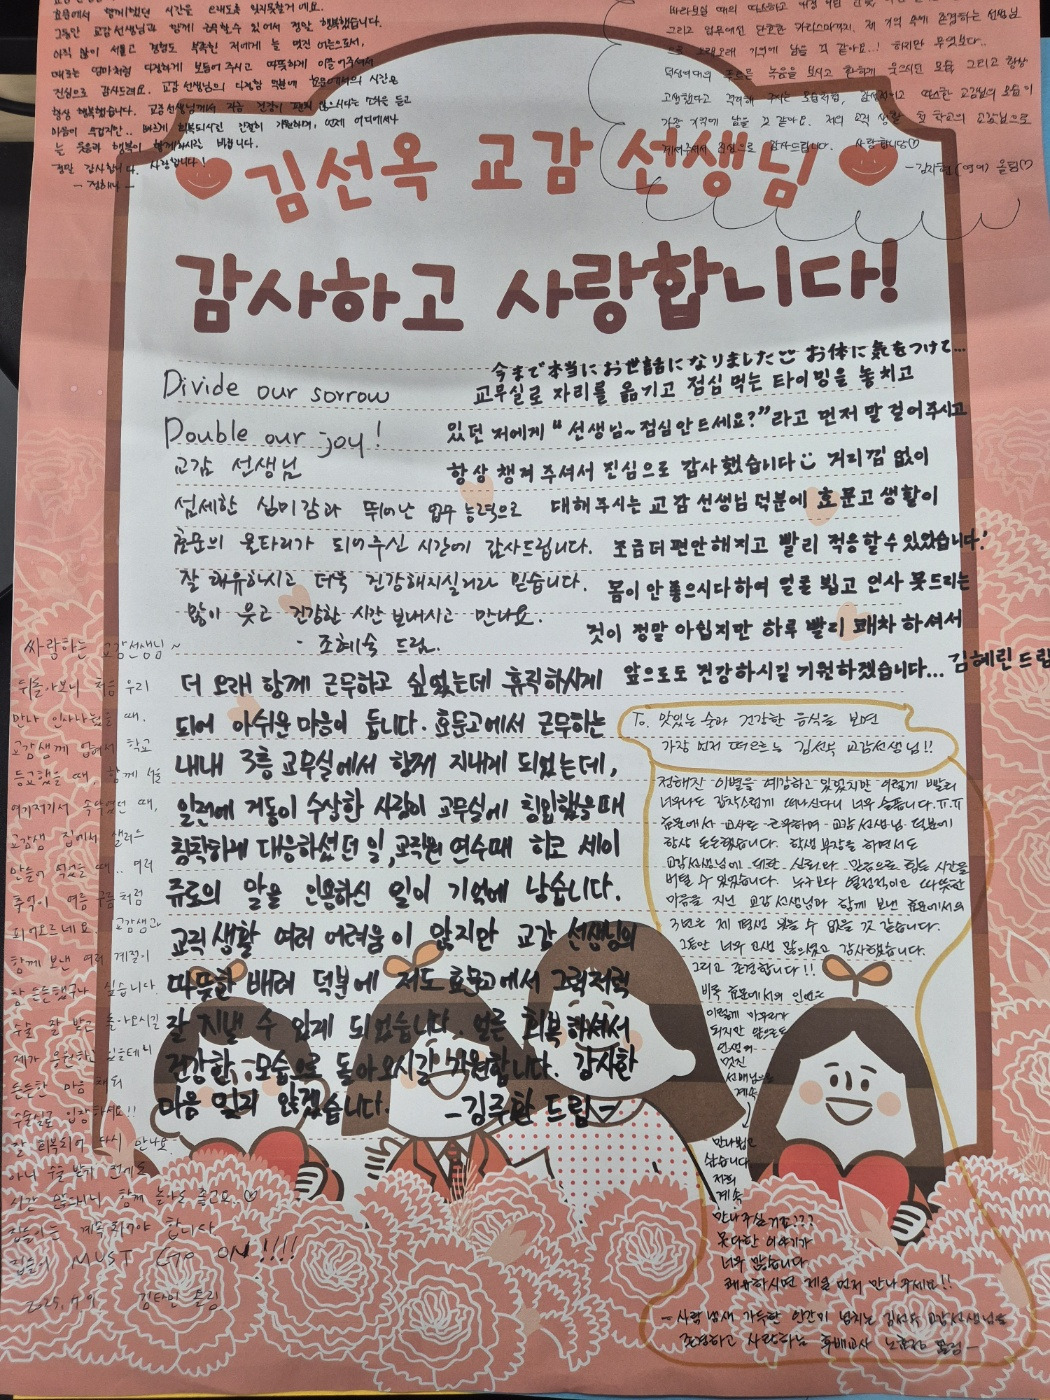 효문에서 함께했던 시간을
그동안 교감선생님과 함께 근무할 수 있어서 정말 행복했습니다.
아직 많이 서툴고 경험도 부족한 저에게 늘 멋진 어른으로서,
때로는 엄마처럼 다정하게 보듬어 주시고 따뜻하게 이끌어주셔서
진심으로 감사드려요. 교감선생님의 다정함 덕분에 효문에서의 시간은
항상 행복했습니다. 교감선생님께서 건강이 편치 않으시다는 소식을 듣고
마음이 무겁지만.. 빠르게 회복되시길 간절히 기원하며, 언제 어디에서나
늘 웃음과 행복이 함께하시길 바랍니다.
정말 감사합니다. 사랑합니다!
그리고 업무에선 단단한 카리스마까지. 제 기억 속에 존경하는 선생님
으로 오래오래 기억에 남을 것 같아요..! 하지만 무엇보다..
녹음을 보시고 환하게 웃으시던 모습 그리고 항상
고생했다고 격려해 주시는 모습처럼, 따스한 교감님의 모습이
가장 기억에 남을 것 같아요. 저의 교직 생활 첫 학교의 교감님으로
계셔주셔서 진심으로 감사드립니다. 사랑합니다♡
김선옥 교감 선생님
감사하고 사랑합니다!
今まで本当にお世話になりました お体に気をつけて...
교무실로 자리를 옮기고 점심 먹는 타이밍을 놓치고
있던 저에게 "선생님~ 점심 안 드세요?"라고 먼저 말 걸어주시고
항상 챙겨 주셔서 진심으로 감사했습니다 거리낌 없이
대해 주시는 교감 선생님 덕분에 효문고 생활이
조금 더 편안해지고 빨리 적응할 수 있었습니다!
몸이 안 좋으시다 하여 얼굴 뵙고 인사 못드리는
것이 정말 아쉽지만 하루 빨리 쾌차 하셔서
앞으로도 건강하시길 기원하겠습니다... 김혜린 드림
Divide our sorrow
Double our joy!
교감 선생님
섬세한 심미감과 뛰어난 업무 능력으로
효문의 울타리가 되어주신 시간에 감사드립니다.
잘 쾌유하시고 더욱 건강해지실거라 믿습니다.
많이 웃고 건강한 시간 보내시고 만나요.
- 조혜숙 드림.
더 오래 함께 근무하고 싶었는데 휴직하시게
되어 아쉬운 마음이 듭니다. 효문고에서 근무하는
내내 3층 교무실에서 함께 지내게 되었는데,
일전에 거동이 수상한 사람이 교무실에 침입했을 때
침착하게 대응하셨던 일, 교직원 연수때 히코 세이
쥬로의 말을 인용하신 일이 기억에 남습니다.
교직생활 여러 어려움이 있지만 교감 선생님의
따뜻한 배려 덕분에 저도 효문고에서 그럭저럭
잘 지낼 수 있게 되었습니다. 얼른 회복하셔서
건강한 모습으로 돌아오시길 기원합니다. 감사한
마음 잊지 않겠습니다. -김주환 드림-
싸랑하는 교감선생님~
뒤돌아보니 처음 우리
만나 인사나눴을 때,
교감샘께 업혀서 학교
등교했을 때, 함께 서울
여기저기서 속닥였던 때,
교감샘 집에서 샐러드
만들어 먹었을 때.. 여러
추억이 여름 구름처럼
피어오르네요. 교감샘과
함께 보낸 여러 계절이
참 든든했구나 싶습니다.
수술 잘 받고 돌아오시길
제가 응원하고 있을테니
든든한 마음 채워
수술실로 입장하세요!!
잘 회복되어 다시 만나요.
아니 수술 받기 전에도
시간 있으시니 함께 놀아도 좋고요.♡
집들이는 계속되어야 합니다.
집들이 MUST GO ON!!!!
To. 맛있는 술과 건강한 음식을 보면
가장 먼저 떠오르는 김선옥 교감선생님!!
정해진 이별을 예감하고 있었지만 이렇게 빨리
너무나도 갑작스럽게 떠나신다니 너무 슬픕니다.ㅠ.ㅠ
효문에서 교사로 근무하며 교감 선생님 덕분에
항상 든든했습니다. 학생부장을 하면서도
교감선생님에 대한 신뢰와 믿음으로 힘든 시간을
버틸 수 있었습니다. 누구보다 열정적이고 따뜻한
마음을 지닌 교감 선생님과 함께 보낸 효문에서의
3년은 제 평생 잊을 수 없을 것 같습니다.
그동안 너무 고생 많으셨고 감사했습니다.
그리고 존경합니다!!
비록 효문에서의 인연은
이렇게 마무리가
되지만 앞으로도
인생의
멋진
선배님으로
계속
만나뵙고
싶습니다
저희
계속
만나주실거죠???
못다한 이야기가
너무 많습니다.
쾌유하시면 제일 먼저 만나주세요!!
- 사람 냄새 가득한 인간미 넘치는 김선옥 교감선생님을
존경하고 사랑하는 후배교사